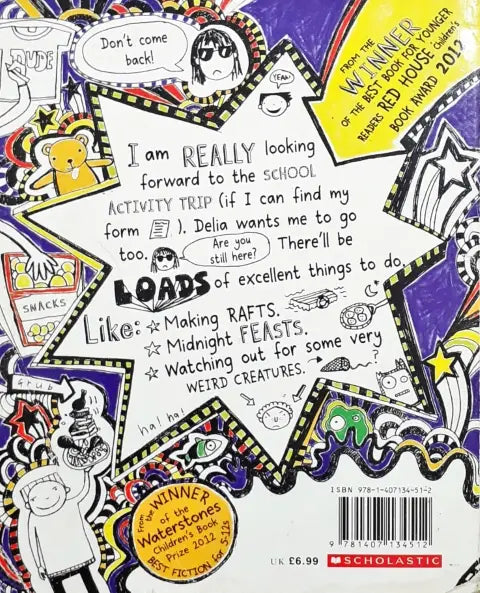 Don't come
back!
DUDE
YEAH!
FROM THE
WINNER
OF THE BEST BOOK FOR YOUNGER
READERS RED HOUSE Children's
BOOK AWARD 2012
I am REALLY looking
forward to the SCHOOL
ACTIVITY TRIP (if I can find my
form ). Delia wants me to go
too. Are you
still here? There'll be
LOADS of excellent things to do.
Like: ☆ Making RAFTS.
☆ Midnight FEASTS.
☆ Watching out for some very
WEIRD CREATURES. ?
SNACKS
Grub
ha! ha!
From the WINNER
of the
Waterstones
Children's Book
Prize 2012
BEST FICTION for 5-12s
ISBN 978-1-407134-51-2
9 781407 134512
UK £6.99 SCHOLASTIC